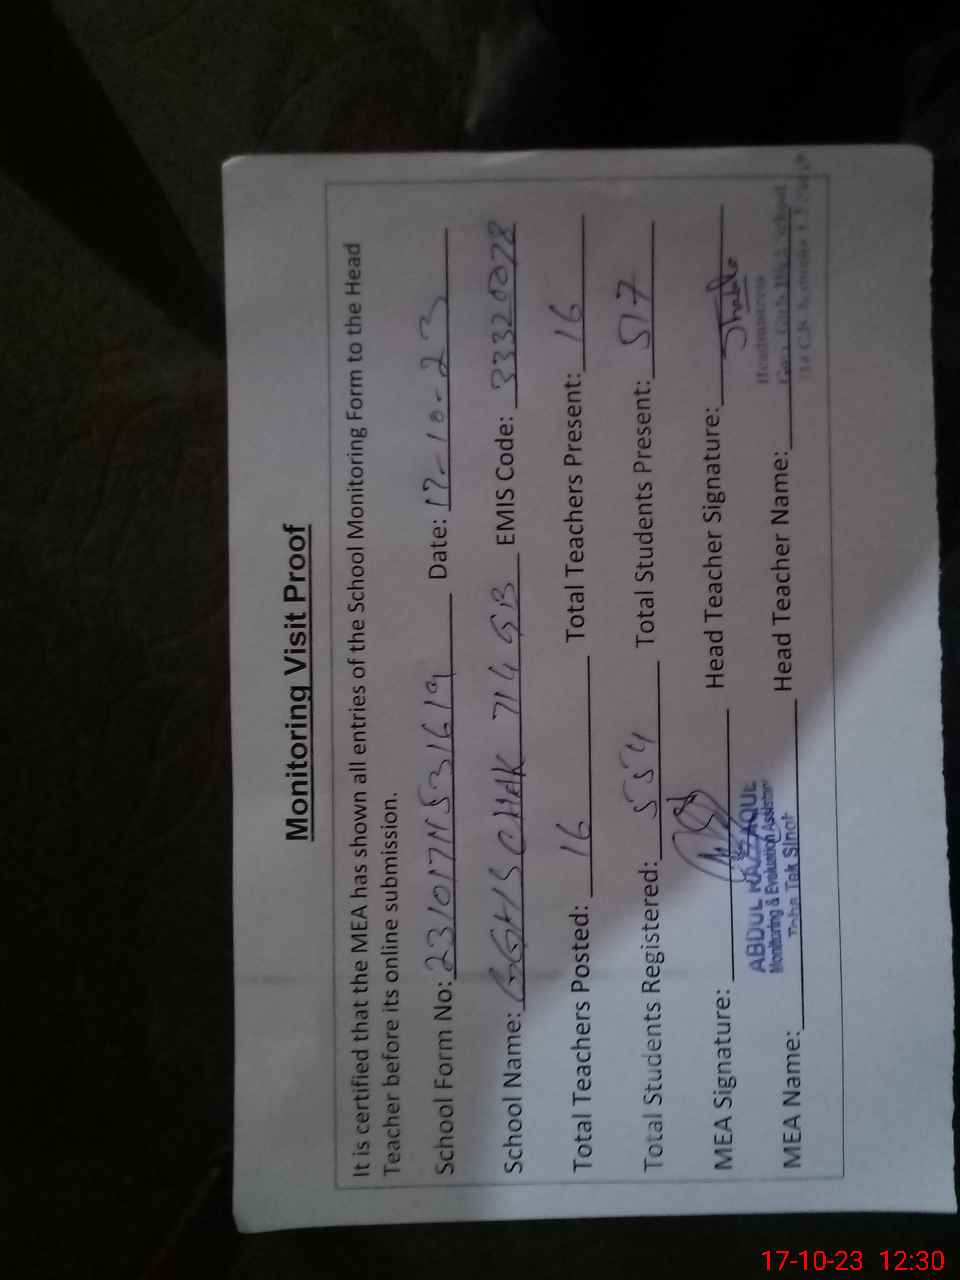 Monitoring Visit Proof
It is certified that the MEA has shown all entries of the School Monitoring Form to the Head
Teacher before its online submission.
School Form No: 231017N531619 Date: 17-10-23
School Name: GGHS CHAK 714 GB EMIS Code: 33320078
Total Teachers Posted: 16 Total Teachers Present: 16
Total Students Registered: 554 Total Students Present: 517
MEA Signature: Head Teacher Signature:
ABDUL RAZZAQUL
Monitoring & Evaluation Assistant
Toba Tek Singh
Headmistress
Govt. Girls High School
714 G.B.
MEA Name: Head Teacher Name:
17-10-23 12:30